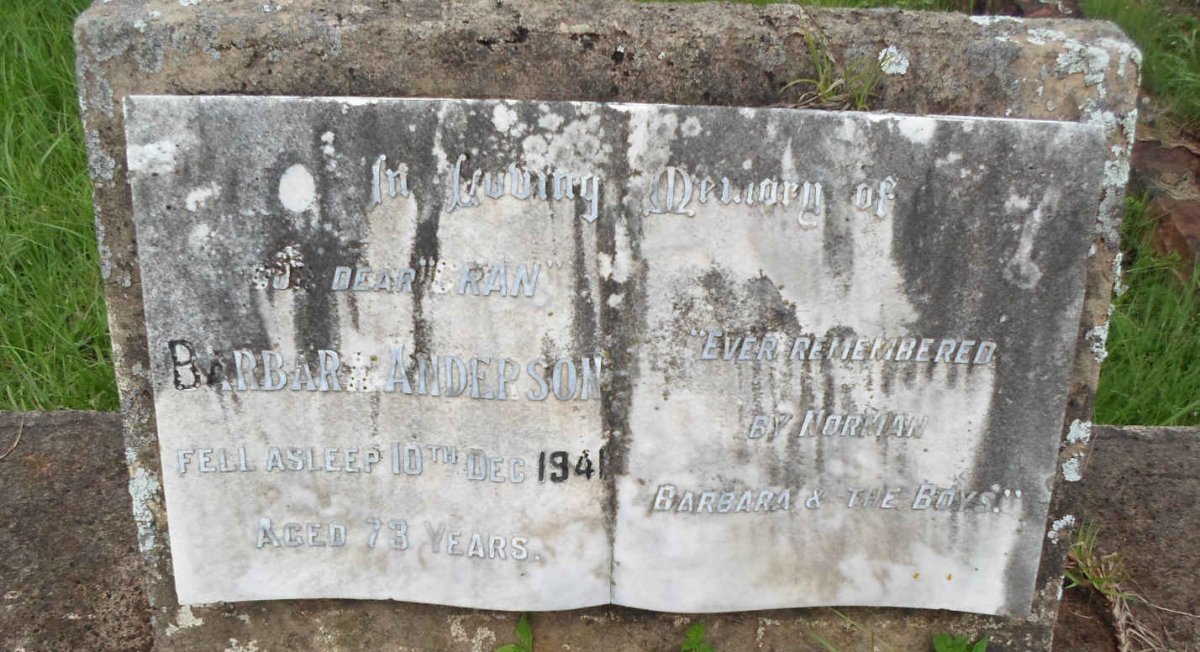 In Loving Memory of
OUR DEAR "GRAN"
BARBARA ANDERSON
FELL ASLEEP 10TH DEC 1941
AGED 73 YEARS.
"EVER REMEMBERED
BY NORMAN
BARBARA & THE BOYS."